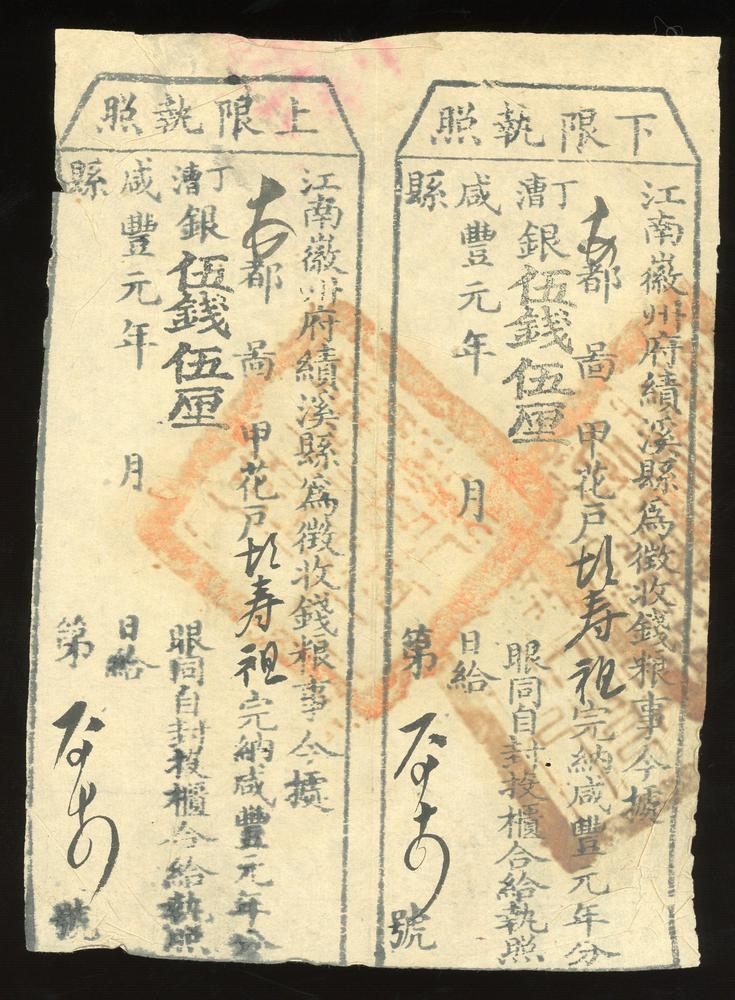 下限執照
江南徽州府績溪縣為徵收錢粮事今據
都 啚 甲花戶 壽祖完納咸豐元年分
丁漕銀伍錢伍厘 眼同自封投櫃合給執照
咸豐元年 月 日給
縣 第 號
上限執照
江南徽州府績溪縣為徵收錢粮事今據
都 啚 甲花戶 壽祖完納咸豐元年分
丁漕銀伍錢伍厘 眼同自封投櫃合給執照
咸豐元年 月 日給
縣 第 號